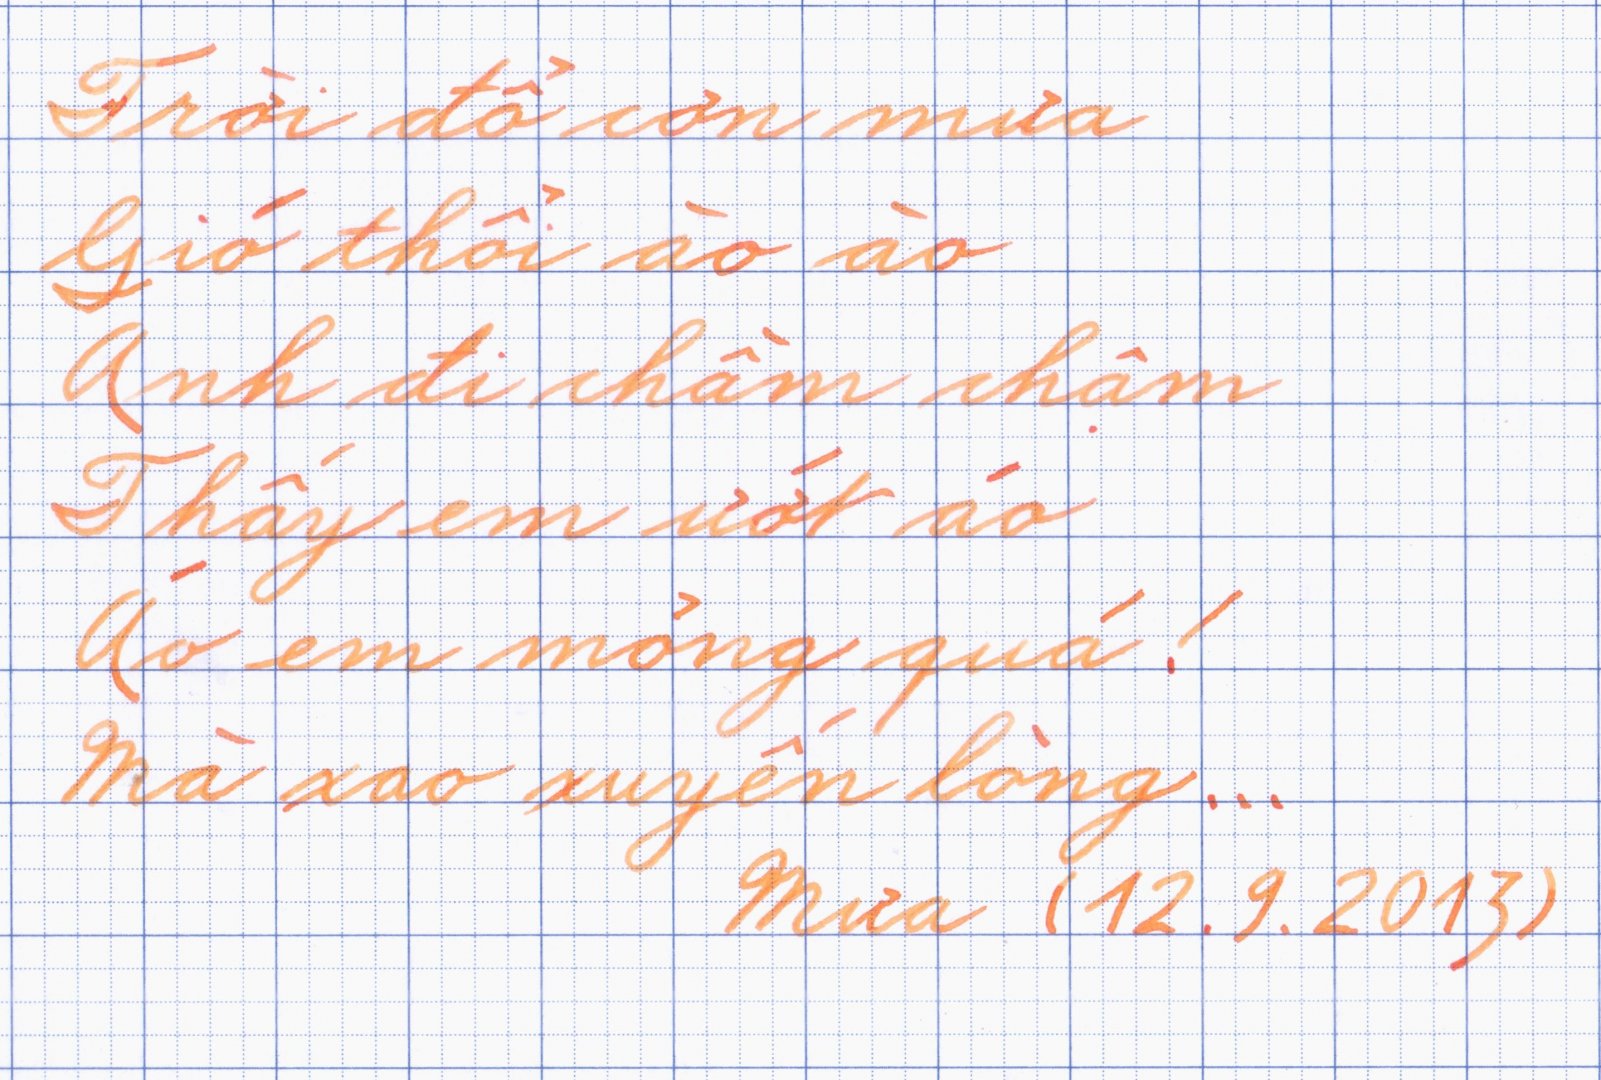 Trời đổ cơn mưa
Gió thổi ào ào
Anh đi chầm chậm
Thấy em ướt áo
Áo em mỏng quá!
Mà xao xuyến lòng...
Mưa (12.9.2013)